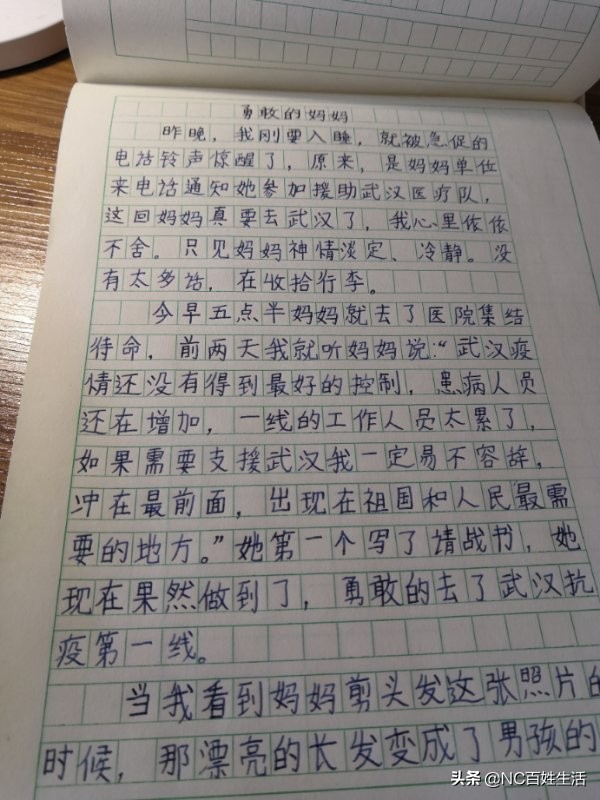 勇敢的妈妈
昨晚，我刚要入睡，就被急促的
电话铃声惊醒了，原来，是妈妈单位
来电话通知她参加援助武汉医疗队，
这回妈妈真要去武汉了，我心里依依
不舍。只见妈妈神情淡定、冷静。没
有太多话，在收拾行李。
今早五点半妈妈就去了医院集结
待命，前两天我就听妈妈说：“武汉疫
情还没有得到最好的控制，患病人员
还在增加，一线的工作人员太累了，
如果需要支援武汉我一定易不容辞，
冲在最前面，出现在祖国和人民最需
要的地方。”她第一个写了请战书，她
现在果然做到了，勇敢的去了武汉抗
疫第一线。
当我看到妈妈剪头发这张照片的
时候，那漂亮的长发变成了男孩的
头条 @NC百姓生活